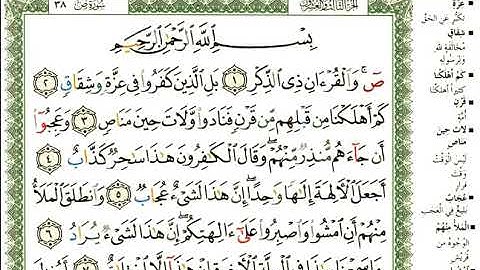 سورة ص ٣٨
الجزء الثالث والعشرون
بِسْمِ اللَّهِ الرَّحْمَٰنِ الرَّحِيمِ
صٓ ۚ وَالْقُرْءَانِ ذِى الذِّكْرِ ١ بَلِ الَّذِينَ كَفَرُوا۟ فِى عِزَّةٍ وَشِقَاقٍ ٢
كَمْ أَهْلَكْنَا مِن قَبْلِهِم مِّن قَرْنٍ فَنَادَوا۟ وَّلَاتَ حِينَ مَنَاصٍ ٣ وَعَجِبُوٓا۟
أَن جَآءَهُم مُّنذِرٌ مِّنْهُمْ ۖ وَقَالَ الْكَٰفِرُونَ هَٰذَا سَٰحِرٌ كَذَّابٌ ٤
أَجَعَلَ الْءَالِهَةَ إِلَٰهًا وَٰحِدًا ۖ إِنَّ هَٰذَا لَشَىْءٌ عُجَابٌ ٥ وَانطَلَقَ الْمَلَأُ
مِنْهُمْ أَنِ امْشُوا۟ وَاصْبِرُوا۟ عَلَىٰٓ ءَالِهَتِكُمْ ۖ إِنَّ هَٰذَا لَشَىْءٌ يُرَادُ ٦
عِزَّة
تكبُّر عن الحق
شِقَاق
مخالفة لله
ولرسوله
كم أهلكنا
كثيراً أهلكنا
قرن
أمة
لات حين
مناص
ليس الوقت
وقت
فرار
عُجاب
بليغ في العجب
الملأ منهم
الوجوه من
قريش